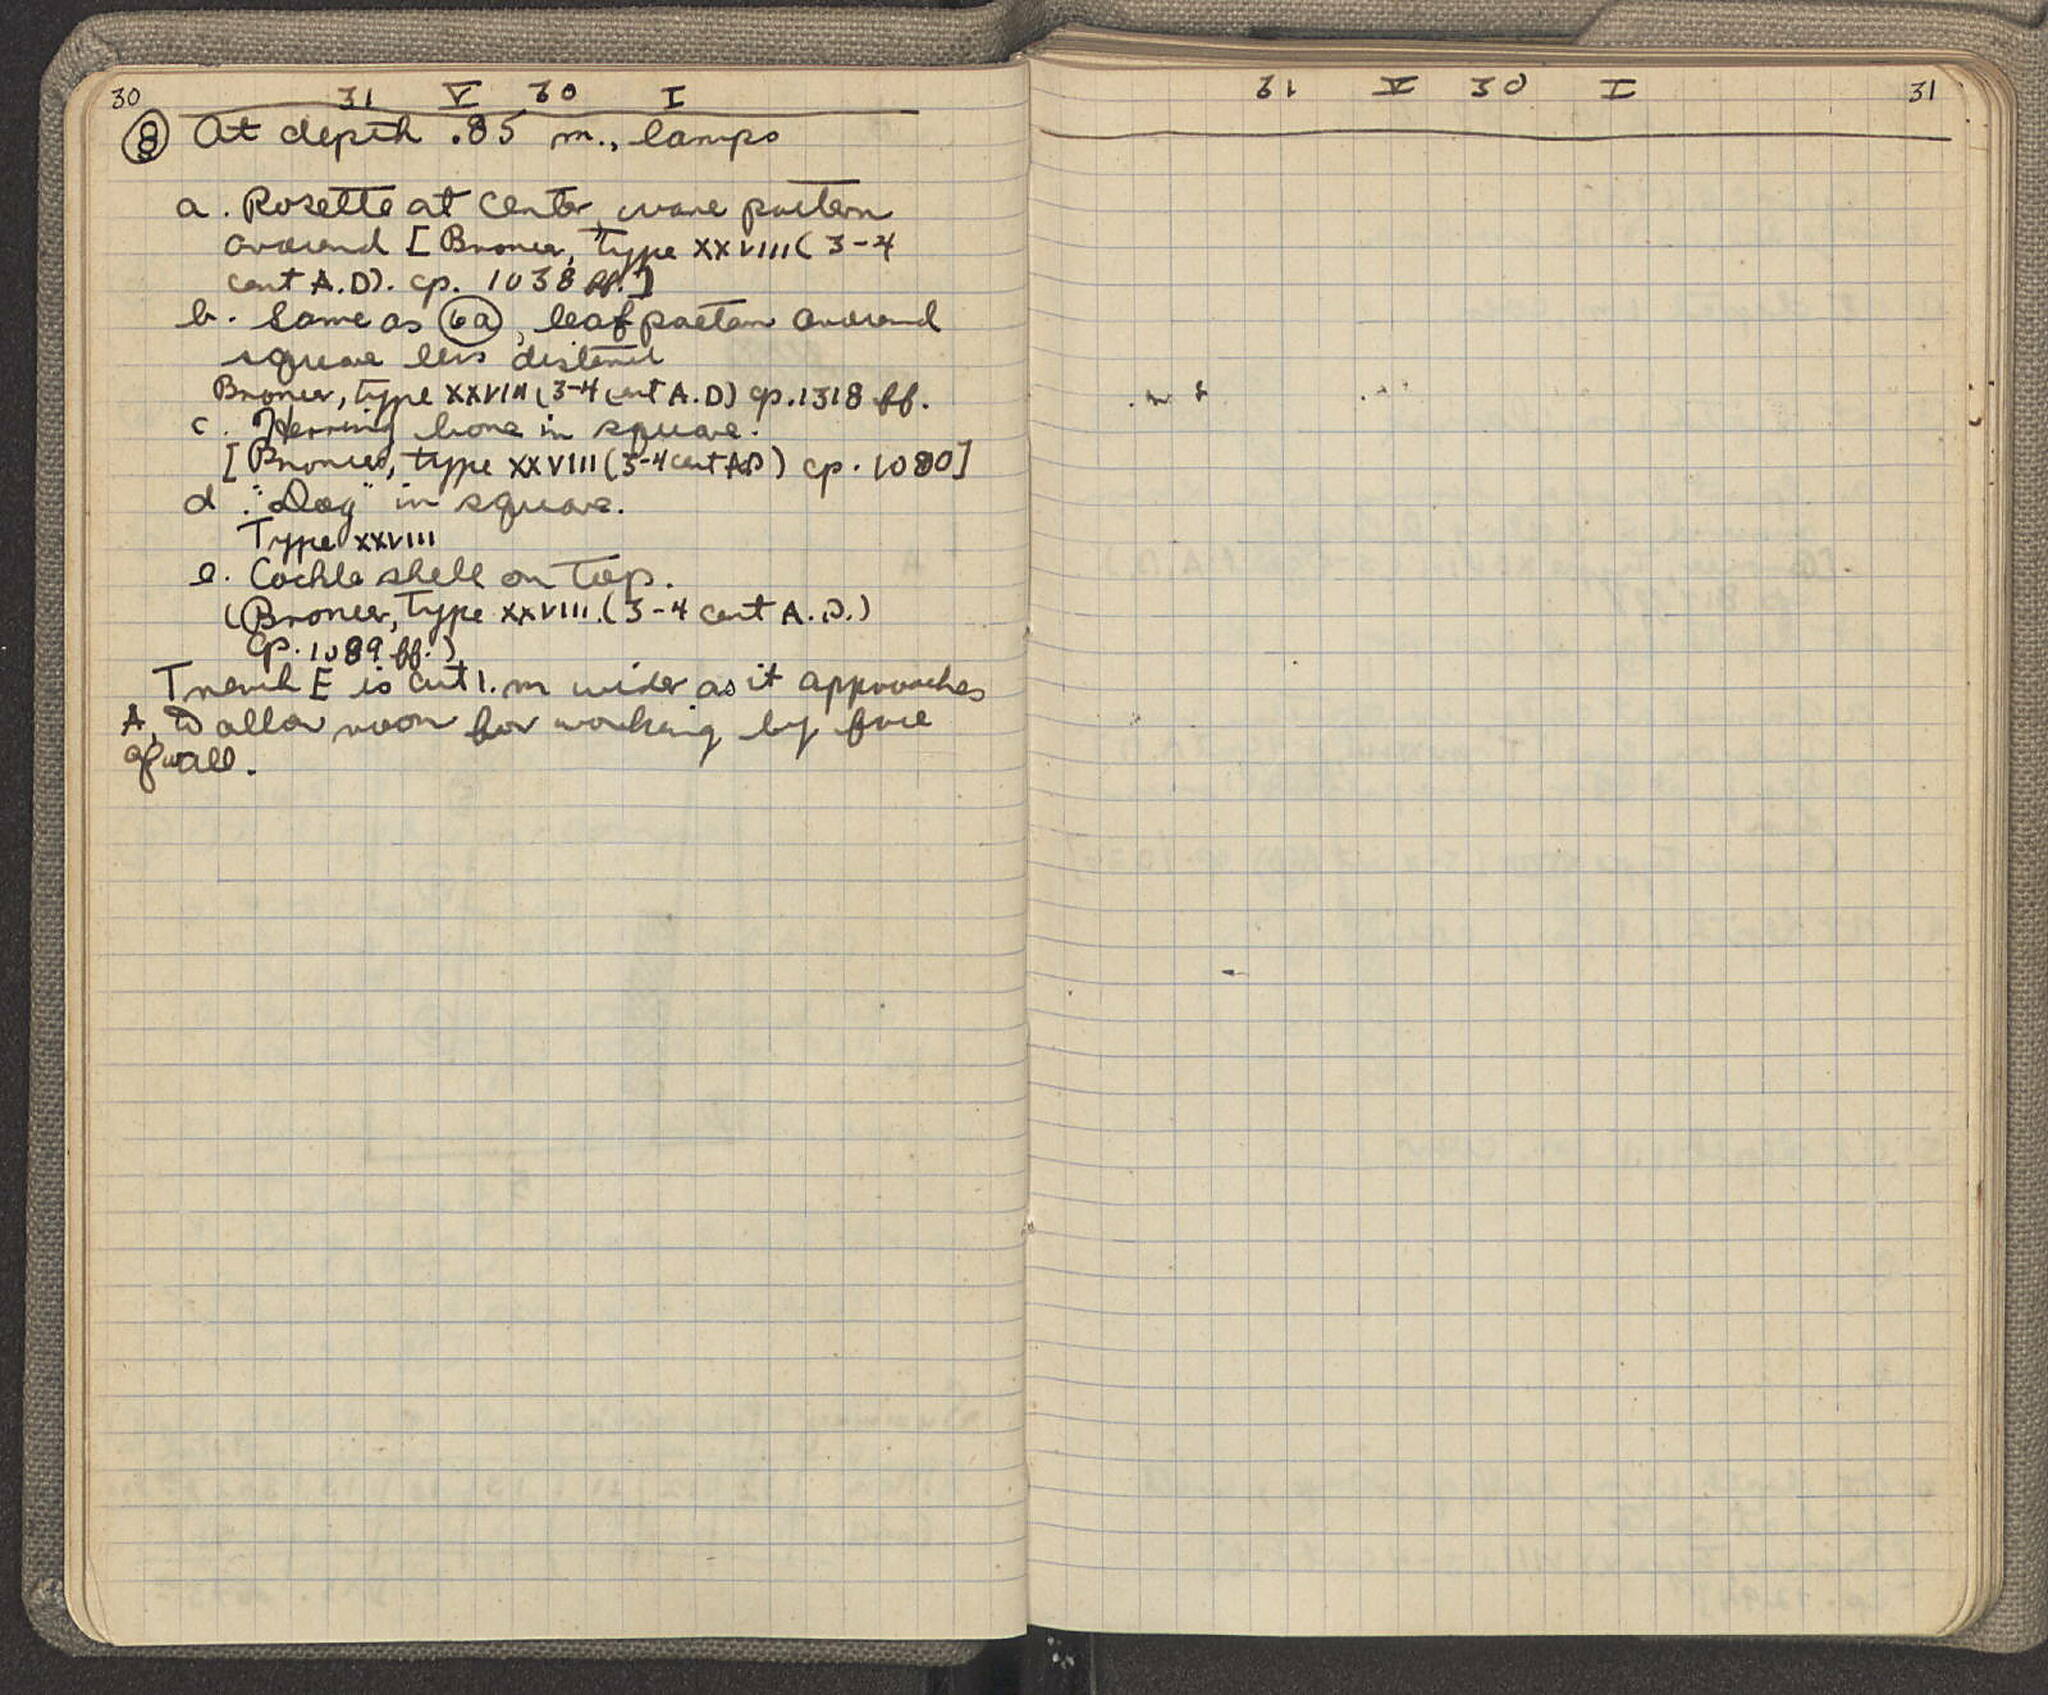 30
31 V 30 I
8 At depth .85 m., lamps
a. Rosette at center, wave pattern
around [Broneer, Type XXVIII (3-4
cent A.D). cp. 1038 ff.]
b. Same as 6a, leaf pattern around
square less distinct
Broneer, type XXVIII (3-4 cent A.D) cp. 1318 ff.
c. Herring bone in square.
[Broneer, type XXVIII (3-4 cent AD) cp. 1080]
d. "Dog" in square.
Type XXVIII
e. Cockle shell on top.
(Broneer, Type XXVIII. (3-4 cent A.D.)
cp. 1089 ff.)
Trench E is cut 1. m wider as it approaches
A, to allow room for working by face
of wall.
31 V 30 I
31